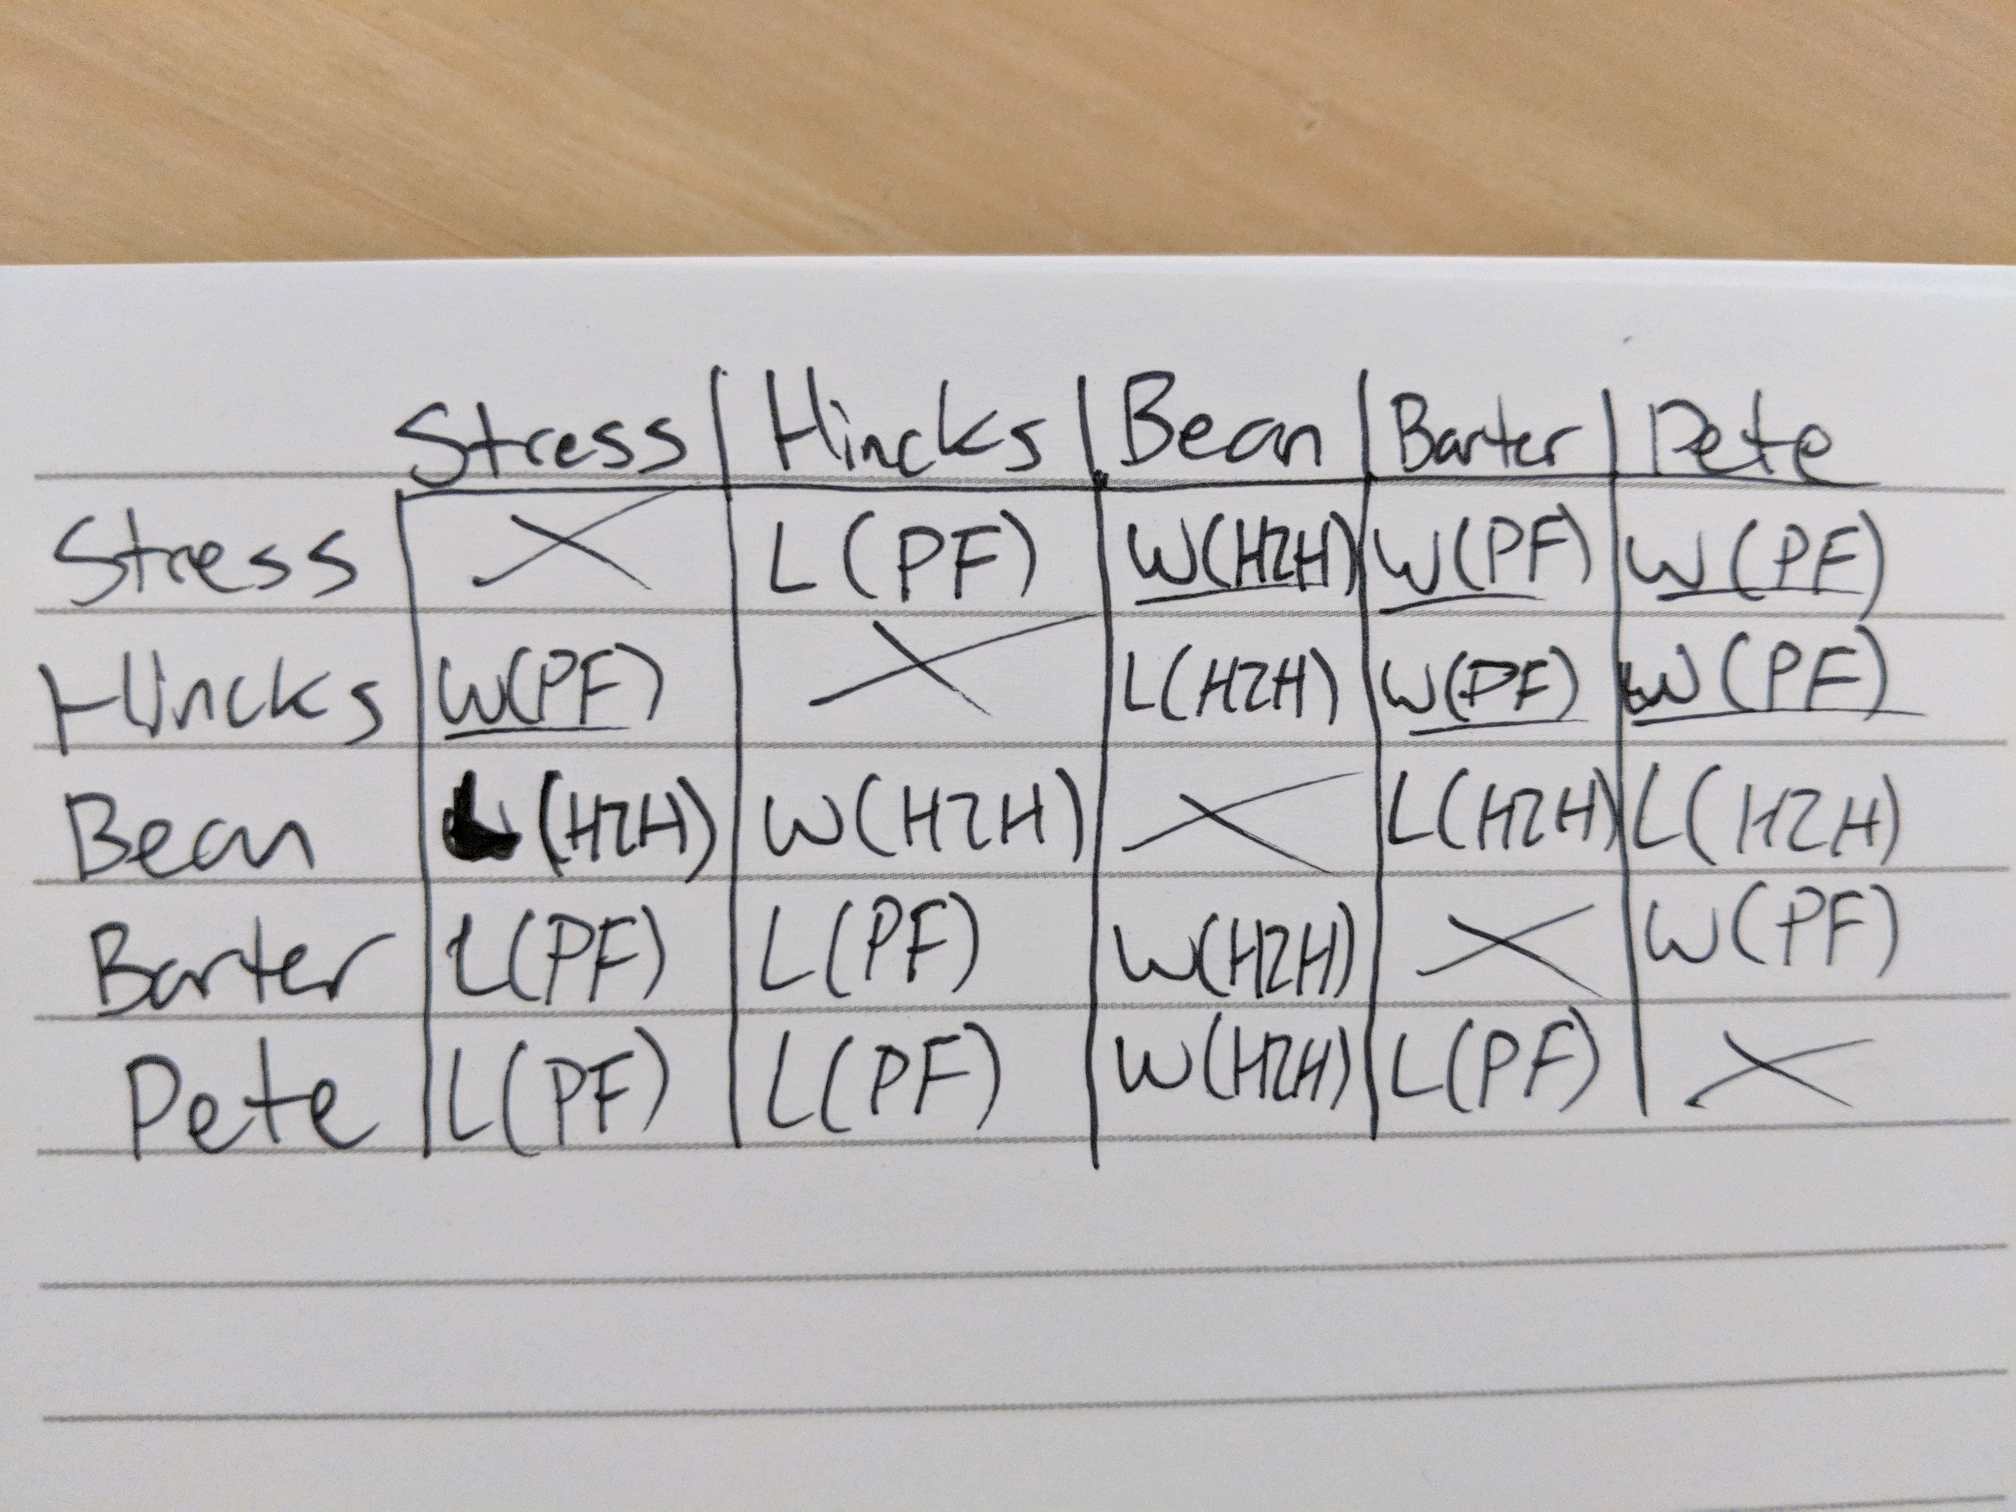 Stress Hincks Bean Barter Pete
Stress X L(PF) W(H2H) W(PF) W(PF)
Hincks W(PF) X L(H2H) W(PF) W(PF)
Bean L(H2H) W(H2H) X L(H2H) L(H2H)
Barter L(PF) L(PF) W(H2H) X W(PF)
Pete L(PF) L(PF) W(H2H) L(PF) X